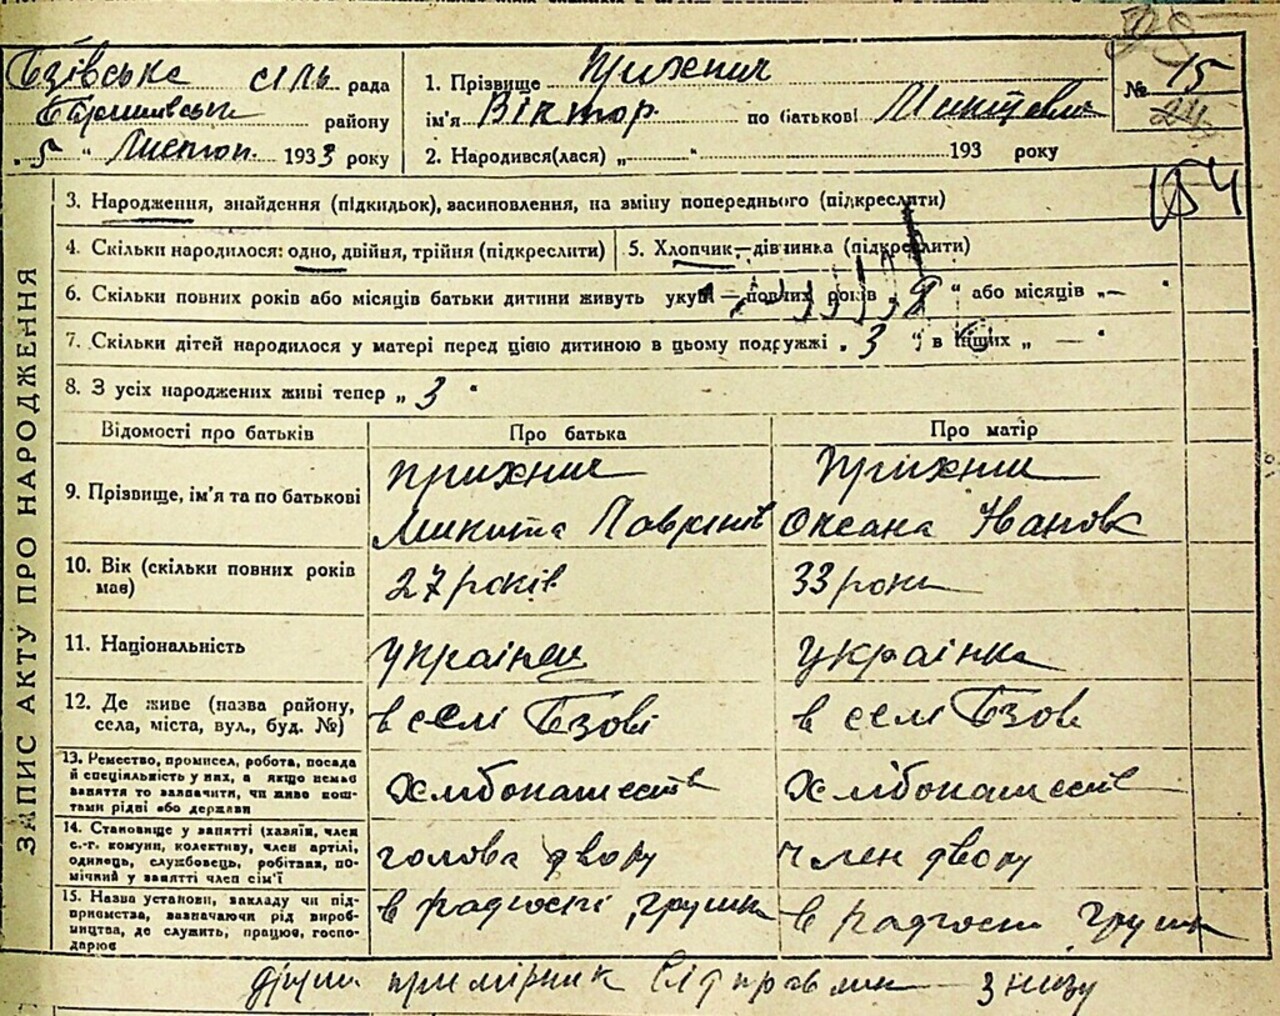 Бзівська сіль рада
Баришівськ району
„5" Листоп. 1933 року
1. Прізвище Прихнич
ім'я Віктор по батькові Микитович
2. Народився(лася) „ " 193 року
№ 15
24
154
ЗАПИС АКТУ ПРО НАРОДЖЕННЯ
3. Народження, знайдення (підкидьок), засиповлення, на зміну попереднього (підкреслити)
4. Скільки народилося: одно, двійня, трійня (підкреслити)
5. Хлопчик—дівчинка (підкреслити)
6. Скільки повних років або місяців батьки дитини живуть укупі — повних років „8" або місяців „—"
7. Скільки дітей народилося у матері перед цією дитиною в цьому подружжі „3" в інших „—"
8. З усіх народжених живі тепер „3"
Відомості про батьків Про батька Про матір
9. Прізвище, ім'я та по батькові
Прихнич
Микита Лаврінів
Прихнич
Оксана Івановн
10. Вік (скільки повних років має)
27 років
33 роки
11. Національність
українец
українка
12. Де живе (назва району,
села, міста, вул., буд. №)
в селі Бзові
в селі Бзов
13. Ремество, промисел, робота, посада
й спеціальність у них, а якщо немає
заняття то зазначити, чи живе кош-
тами рідні або держави
Хлібопашеств
Хлібопашеств
14. Становище у занятті (хазяїн, член
с.-г. комуни, колективу, член артілі,
одинець, службовець, робітник, по-
мічний у занятті член сім'ї
голова двору
член двору
15. Назва установи, закладу чи під-
приємства, зазначаючи рід вироб-
ництва, де служить, працює, госпо-
дарює
в
в
примірник відправлен знизу